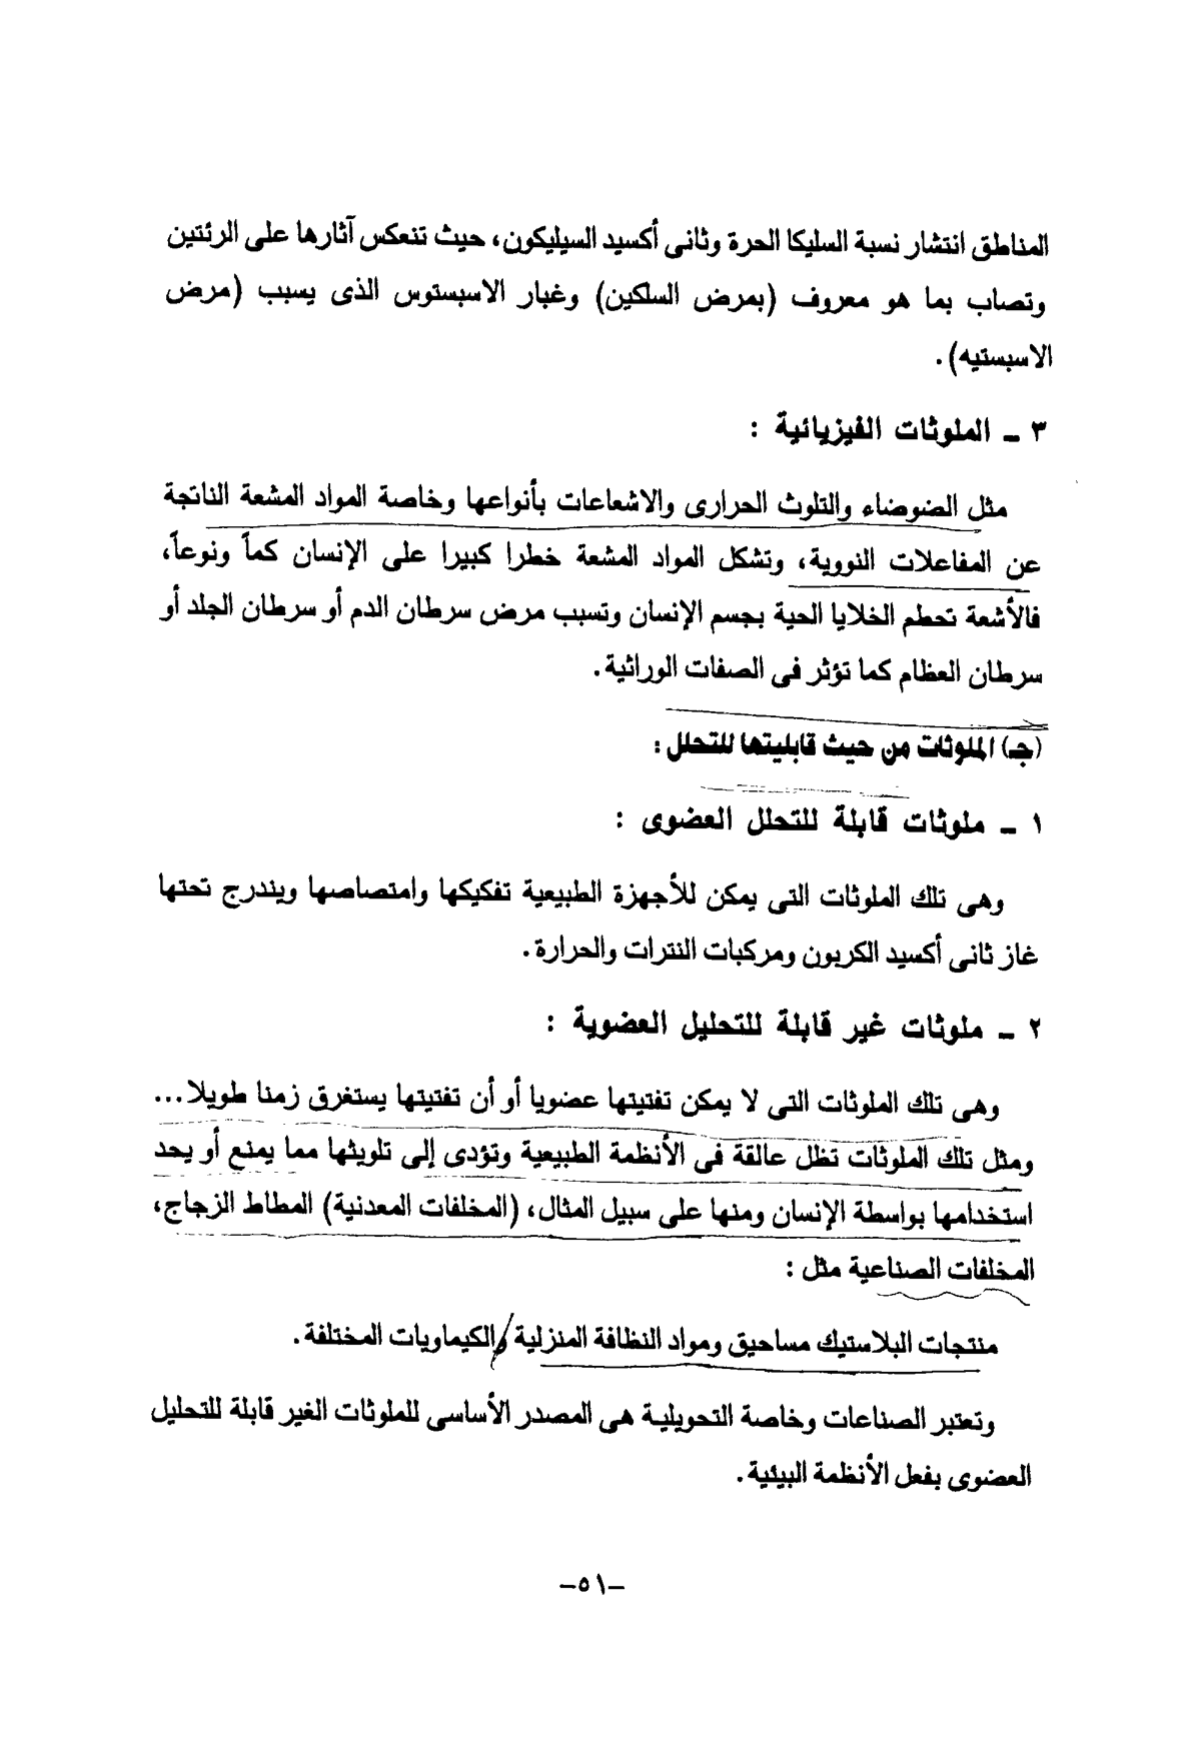 المناطق انتشار نسبة السليكا الحرة وثانى أكسيد السيليكون، حيث تنعكس آثارها على الرئتين
وتصاب بما هو معروف (بمرض السلكين) وغبار الاسبستوس الذى يسبب (مرض
الاسبستيه) .
٣ ــ الملوثات الفيزيائية :
مثل الضوضاء والتلوث الحرارى والاشعاعات بأنواعها وخاصة المواد المشعة الناتجة
عن المفاعلات النووية، وتشكل المواد المشعة خطرا كبيرا على الإنسان كماً ونوعاً،
فالأشعة تحطم الخلايا الحية بجسم الإنسان وتسبب مرض سرطان الدم أو سرطان الجلد أو
سرطان العظام كما تؤثر فى الصفات الوراثية.
(جـ) الملوثات من حيث قابليتها للتحلل :
١ ــ ملوثات قابلة للتحلل العضوى :
وهى تلك الملوثات التى يمكن للأجهزة الطبيعية تفكيكها وامتصاصها ويندرج تحتها
غاز ثانى أكسيد الكربون ومركبات النترات والحرارة.
٢ ــ ملوثات غير قابلة للتحليل العضوية :
وهى تلك الملوثات التى لا يمكن تفتيتها عضويا أو أن تفتيتها يستغرق زمنا طويلا...
ومثل تلك الملوثات تظل عالقة فى الأنظمة الطبيعية وتؤدى إلى تلويثها مما يمنع أو يحد
استخدامها بواسطة الإنسان ومنها على سبيل المثال، (المخلفات المعدنية) المطاط الزجاج،
المخلفات الصناعية مثل :
منتجات البلاستيك مساحيق ومواد النظافة المنزلية والكيماويات المختلفة.
وتعتبر الصناعات وخاصة التحويلية هى المصدر الأساسى للملوثات الغير قابلة للتحليل
العضوى بفعل الأنظمة البيئية.
–٥١–